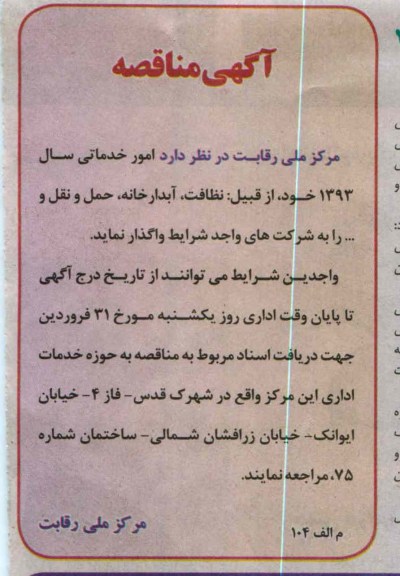 آگهی مناقصه
مرکز ملی رقابت در نظر دارد امور خدماتی سال
۱۳۹۳ خود، از قبیل: نظافت، آبدارخانه، حمل و نقل و
... را به شرکت های واجد شرایط واگذار نماید.
واجدین شرایط می توانند از تاریخ درج آگهی
تا پایان وقت اداری روز یکشنبه مورخ ۳۱ فروردین
جهت دریافت اسناد مربوط به مناقصه به حوزه خدمات
اداری این مرکز واقع در شهرک قدس- فاز ۴- خیابان
ایوانک- خیابان زرافشان شمالی- ساختمان شماره
۷۵، مراجعه نمایند.
مرکز ملی رقابت
م الف ۱۰۴